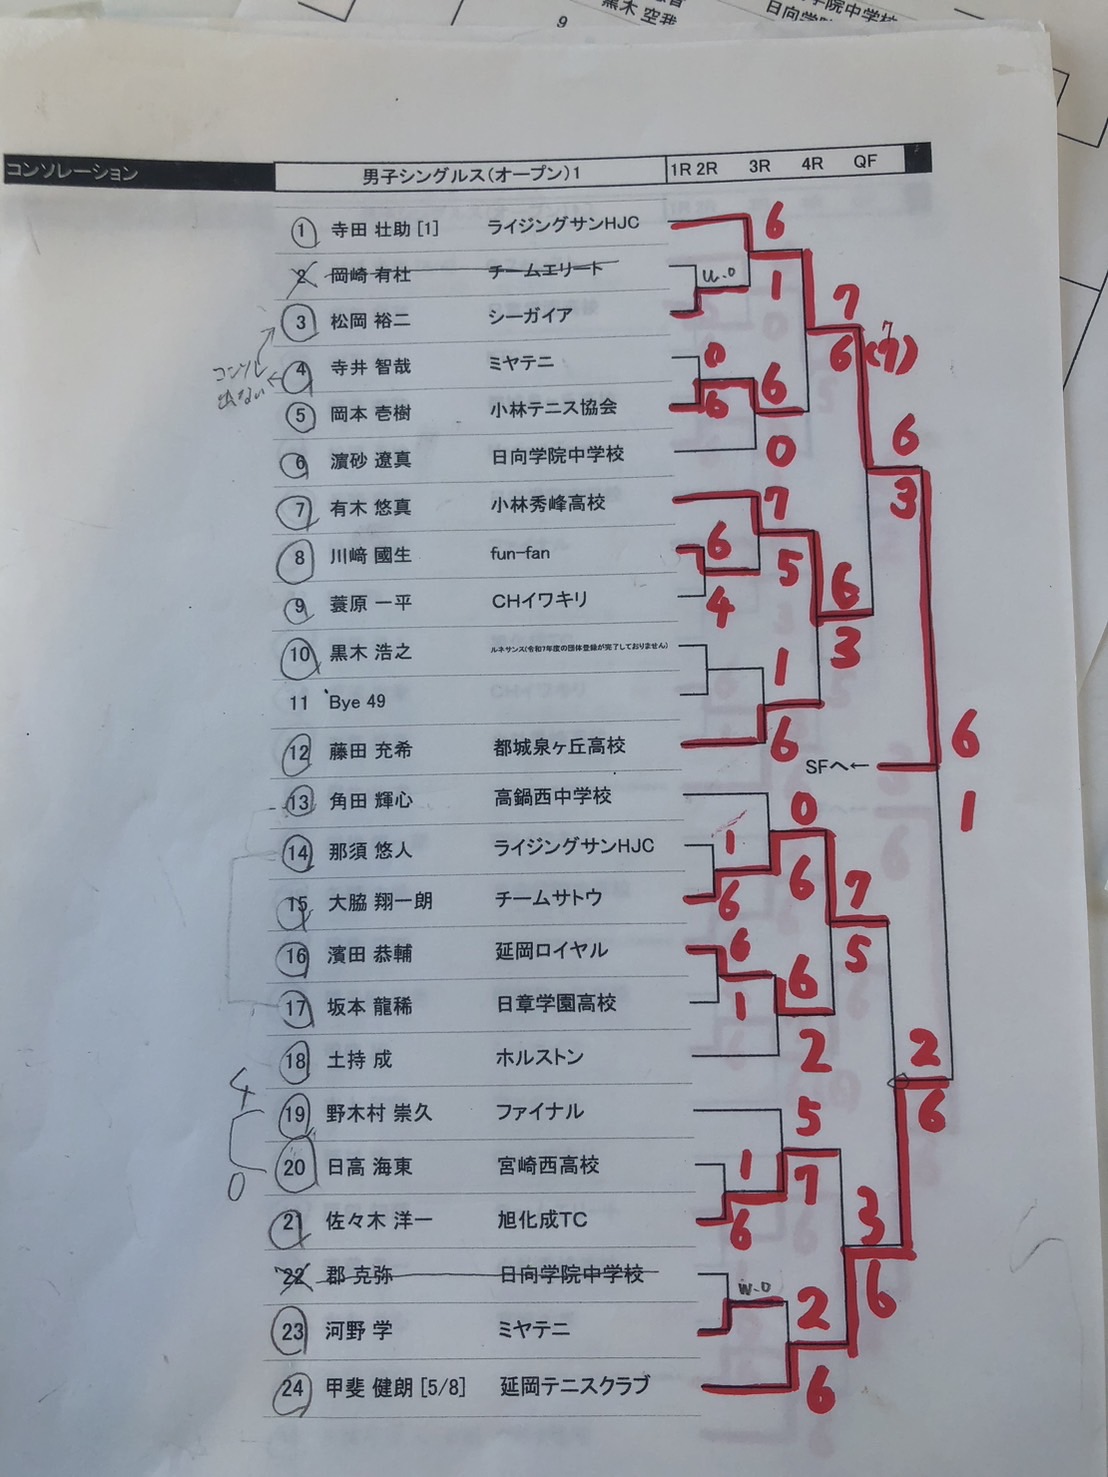 9
黒木 空我
日向学院中学校
コンソレーション 男子シングルス(オープン)1 1R 2R 3R 4R QF
1 寺田 壮助 [1] ライジングサンHJC 6
2 岡崎 有杜 チームエリート W.O
1
7
3 松岡 裕二 シーガイア
6 (7)
7
コンソレ
出ない
4 寺井 智哉 ミヤテニ 0
5 岡本 壱樹 小林テニス協会 6 6
6
6 濵砂 遼真 日向学院中学校 0
3
7 有木 悠真 小林秀峰高校 7
8 川﨑 國生 fun-fan 6 5
9 蓑原 一平 CHイワキリ 4 6
3
10 黒木 浩之 ルネサンス(令和7年度の団体登録が完了しておりません) 1
11 Bye 49
12 藤田 充希 都城泉ヶ丘高校 6
6
SFへ←
1
13 角田 輝心 高鍋西中学校 0
14 那須 悠人 ライジングサンHJC 1 6 7
15 大脇 翔一朗 チームサトウ 6
16 濱田 恭輔 延岡ロイヤル 6 6 5
17 坂本 龍稀 日章学園高校 1
18 土持 成 ホルストン 2 2
4
19 野木村 崇久 ファイナル 5 6
20 日高 海東 宮崎西高校 1 7
0
21 佐々木 洋一 旭化成TC 6 3
22 郡 克弥 日向学院中学校 W.O 6
23 河野 学 ミヤテニ 2
24 甲斐 健朗 [5/8] 延岡テニスクラブ 6